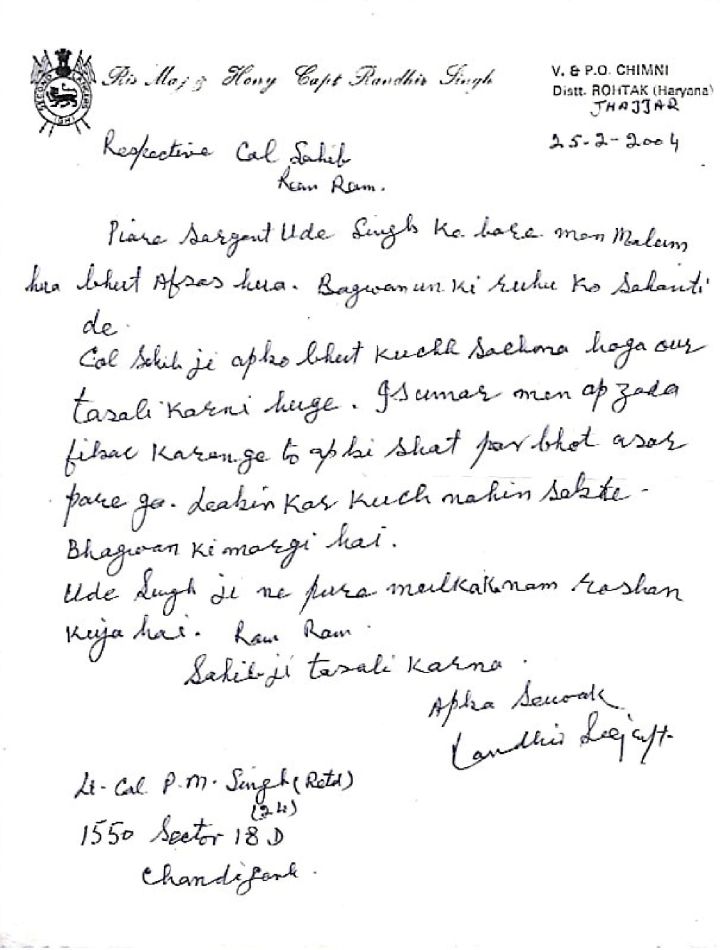 Ris Maj & Hony Capt Randhir Singh
V. & P.O. CHIMNI
Distt. ROHTAK (Haryana)
JHAJJAR
25-2-2004
SECOND LANCERS
Respective Col Sahib
Ram Ram.
Piara Sargent Ude Singh Ke bara men Malum
hua bhut Afsas hua. Bagwan un ki ruhu ko Sahanti
de.
Col Sahib ji apko bhut kuchh sochna hoga our
tasali karni huge. Is umar men ap zada
fikar karenge to apki shat par bhot asar
pare ga. Leakin kar kuch nahin sakte -
Bhagwan ki margi hai.
Ude Singh ji ne pura mulk ka nam roshan
kiya hai. Ram Ram.
Sahib ji tasali karna.
Apka Sewak
Randhir Capt.
Lt-Col P.M. Singh (Retd)
(2L)
1550 Sector 18 D
Chandigarh.